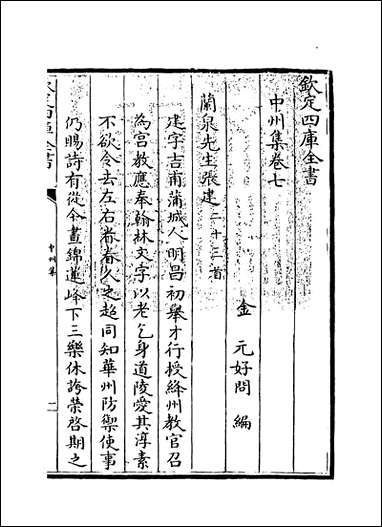 欽定四庫全書
中州集卷七
金 元好問 編
蘭泉先生張建二十三首
建字吉甫蒲城人明昌初舉才行授絳州教官召
為宫教應奉翰林文字以老乞身道陵愛其淳素
不欲令去左右眷眷久之超同知華州防禦使事
仍賜詩有從今晝錦蓮峰下三樂休誇榮啓期之
中州集
一